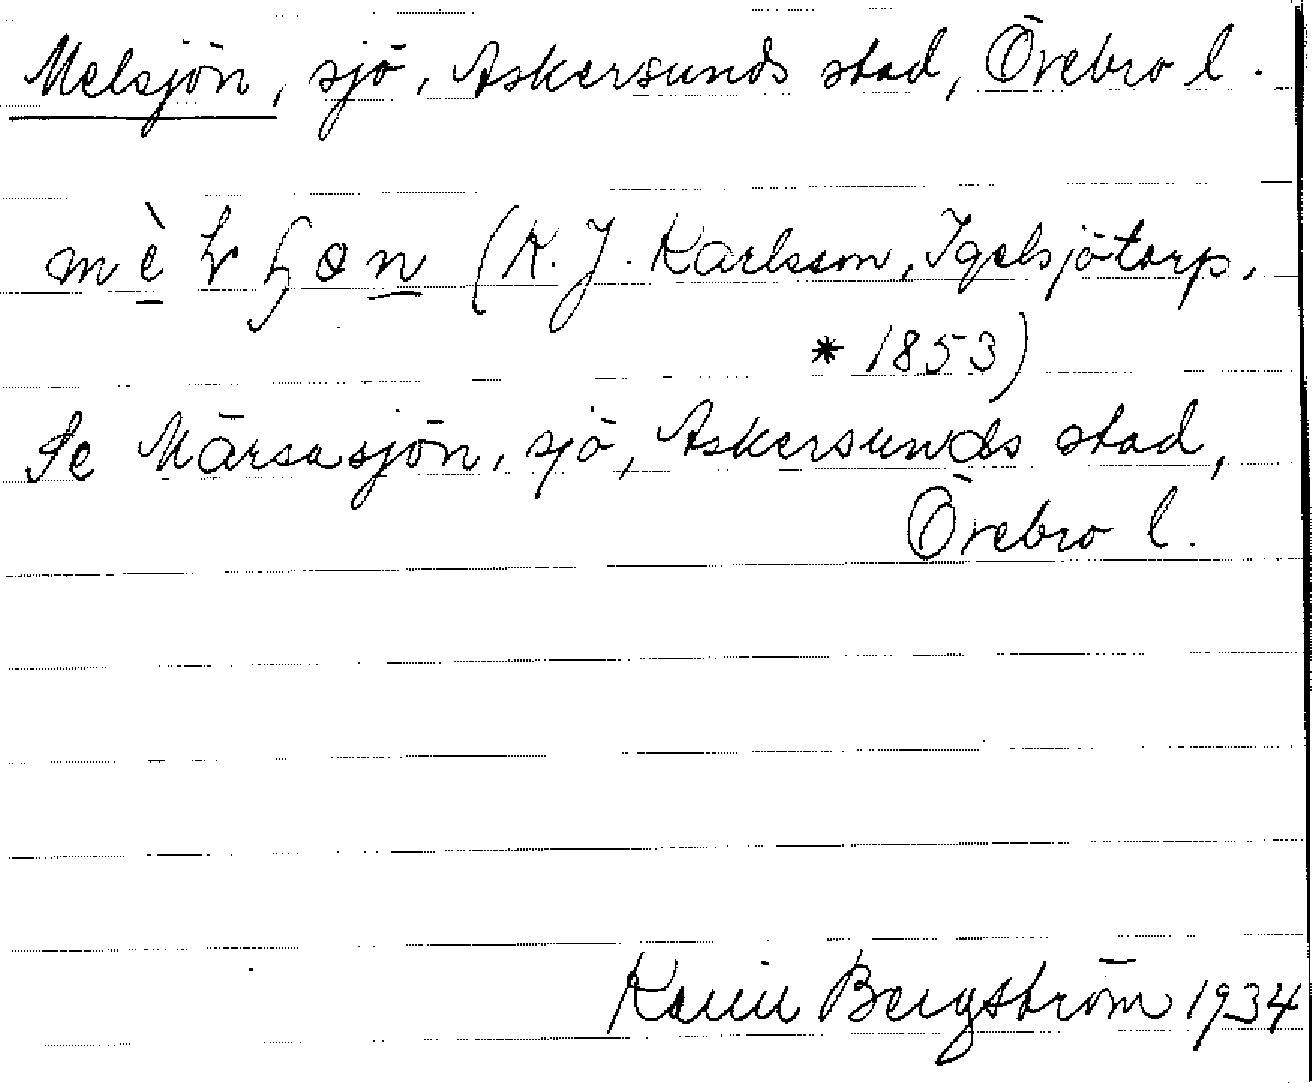 Melsjön, sjö, Askersunds stad, Örebro l.
(K. J. Karlsson, Igelsjötorp,
* 1853)
Se Märsasjön, sjö, Askersunds stad,
Örebro l.
Karin Bergström 1934